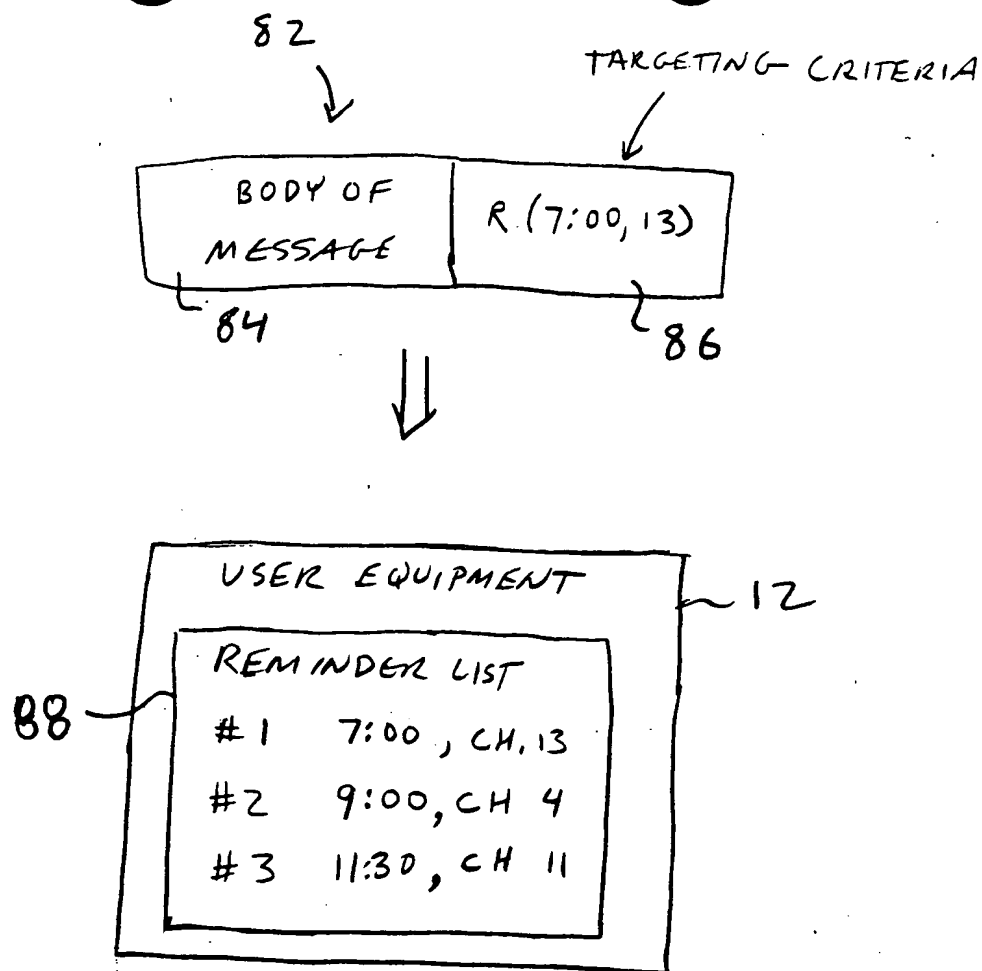 82
TARGETING CRITERIA
BODY OF
MESSAGE
R.(7:00, 13)
84
86
USER EQUIPMENT
12
REMINDER LIST
88
#1 7:00, CH. 13
#2 9:00, CH 4
#3 11:30, CH 11